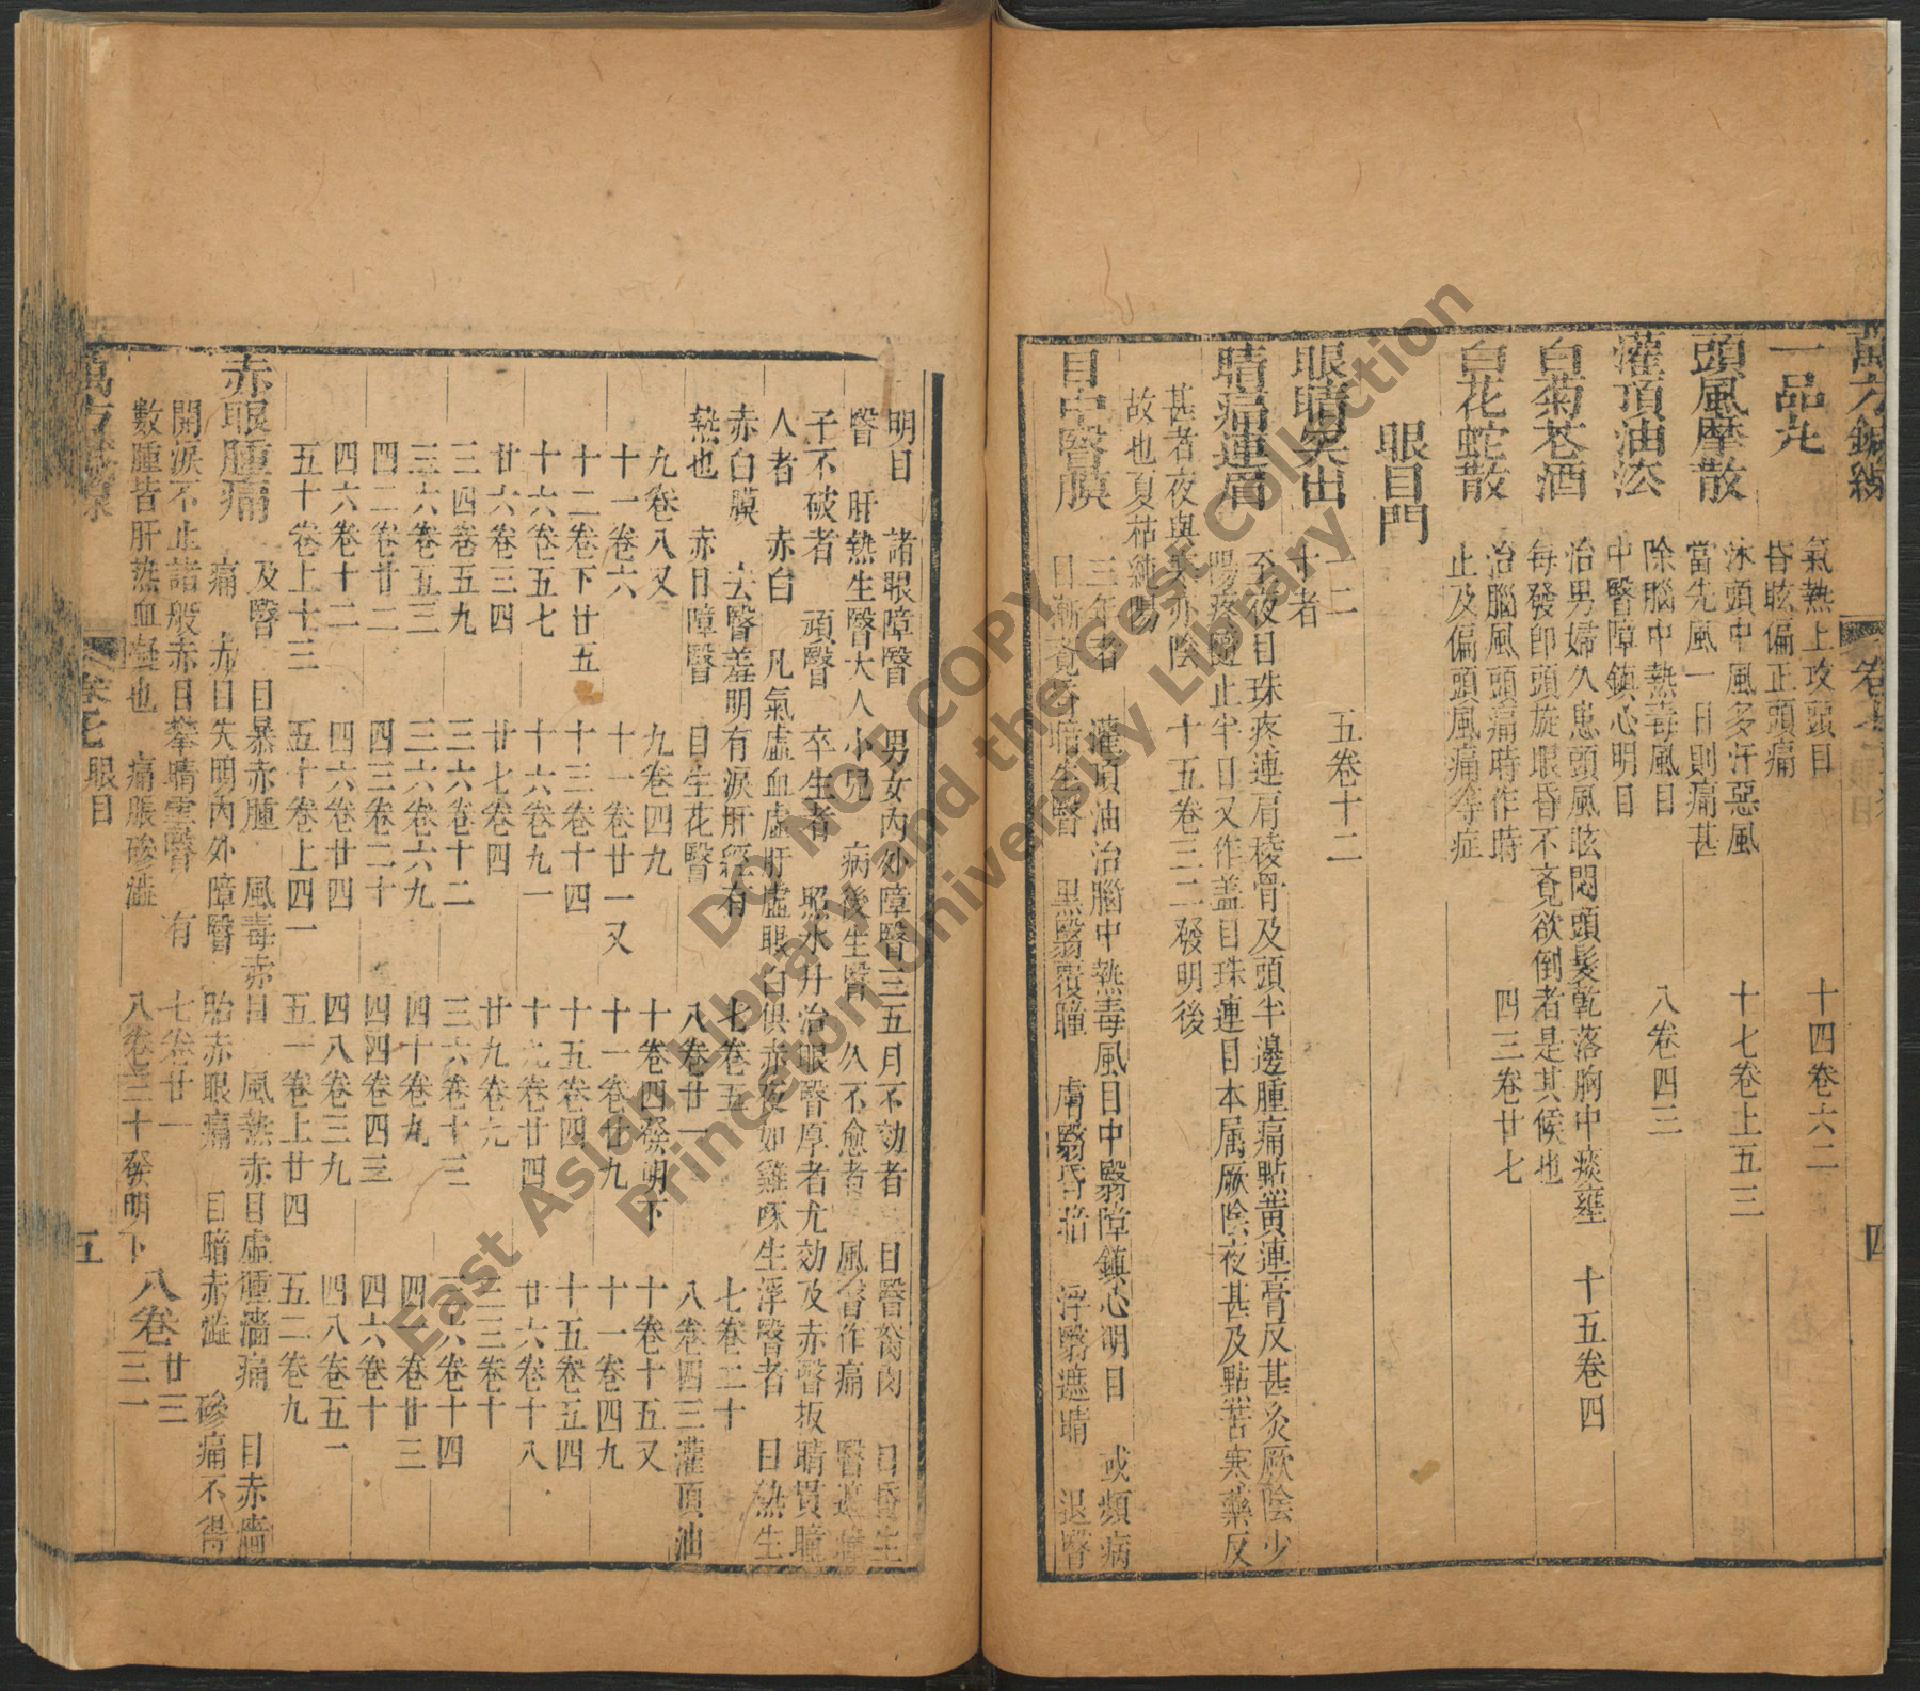 萬方鍼線
一品丸
氣熱上攻頭目
昏眩偏正頭痛
十四卷六二
頭風摩散
沐頭中風多汗惡風
當先風一日則痛甚
十七卷上五三
灌頂油法
除腦中熱毒風目
中瞖障鎮心明目
八卷四三
白菊花酒
治男婦久患頭風眩悶頭髮乾落胸中痰壅
每發即頭旋眼昏不覔欲倒者是其候也
十五卷四
白花蛇散
治腦風頭痛時作時
止及偏頭風痛等症
四三卷廿七
眼目門
眼睛突出
一二
十者
五卷十二
睛痛連眉
至夜目珠疼連眉稜骨及頭半邊腫痛點黃連膏反甚灸厥陰少
陽疼隨止半日又作盖目珠連目本属厥陰夜甚及點苦寒藥反
甚者夜與寒亦陰
故也夏枯純陽
十五卷三二發明後
目中瞖膜
三年者
灌頂油治腦中熱毒風目中翳障鎮心明目
或頻病
目漸覔昏暗生瞖
黑翳覆瞳
膚翳昏暗
浮翳遮睛
退瞖
四
明目
諸眼障瞖
男女內外障瞖三五月不効者
三日瞖胬肉
目昏生
瞖
肝熱生瞖大人小兒
病後生瞖
久不愈者
風瞖作痛
瞖遮瞳
子不破者
頑瞖
卒生者
照水丹治眼瞖厚者尤効及赤瞖扳睛貫瞳
人者
赤白
凡氣虛血虛肝虛眼白俱赤夜如雞啄生浮瞖者
目熱生
赤白膜
去瞖羞明有淚肝經有
七卷五
七卷二十
熱也
赤目障瞖
目生花瞖
八卷廿一
八卷四三灌頂油
九卷八又
九卷四九
十卷四發明下
十卷十五又
十一卷六
十一卷廿一又
十一卷廿九
十一卷四九
十二卷下廿五
十三卷十四
十五卷四
十五卷五四
十六卷五七
十六卷九一
十九卷廿四
廿六卷十八
廿六卷三四
廿七卷四
廿九卷九
三三卷十
三四卷五九
三六卷十二
三六卷十三
三六卷十四
三六卷五三
三六卷六九
四十卷九
四一卷廿三
四二卷廿二
四三卷二十
四四卷四三
四六卷十
四六卷十二
四六卷廿四
四八卷三九
四八卷五一
五十卷上十三
五十卷上四一
五一卷上廿四
五二卷九
赤眼腫痛
及瞖
目暴赤腫
風毒赤目
風熱赤目虛腫濇痛
目赤濇
痛
赤目失明內外障瞖
胎赤眼痛
目暗赤澁
磣痛不得
開淚不止諸般赤目攀睛雲瞖
有
七卷廿一
八卷廿三
數腫皆肝熱血凝也
痛脹磣澁
八卷三十發明下
三一
眼目
五
East Asian Library and the Gest Collection
DO NOT COPY
Princeton University Library